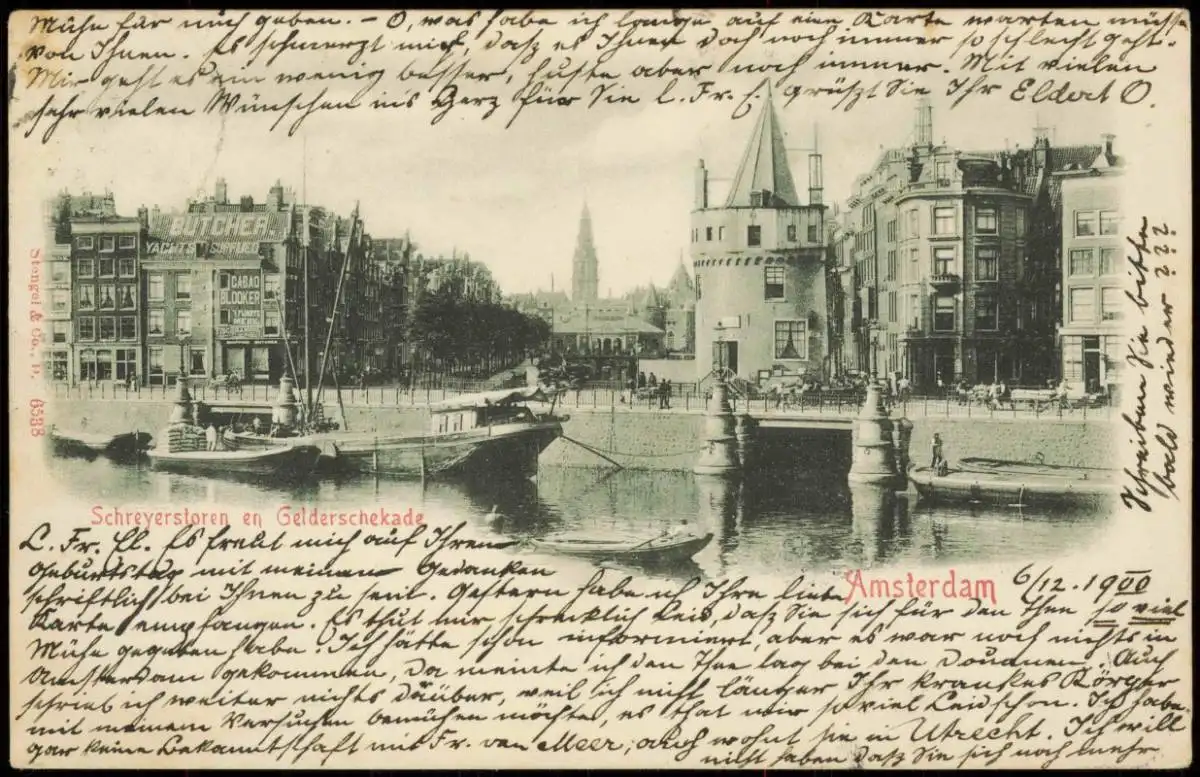 Mühe für mich geben. - O, was habe ich lange auf eine Karte warten müssen
von Ihnen. Es schmerzt mich, dasz es Ihnen doch noch immer so schlecht geht.
Mir geht es ein wenig besser, huste aber noch immer. Mit vielen
sehr vielen Wünschen ins Herz für Sie l. Fr. E. grüszt Sie Ihr Eldert O.
BUTCHER
YACHTS
CACAO
BLOOKER
Stengel & Co., D. 6588
Schreiben Sie bitte
bald wieder ???
Schreyerstoren en Gelderschekade
Amsterdam
6/12. 1900
L. Fr. El. Es freut mich auf Ihren
Geburtstag mit meinen Gedanken
schriftlich bei Ihnen zu sein. Gestern habe ich Ihre liebe
Karte empfangen. Es thut mir schrecklich Leid, dasz Sie sich für den Thee so viel
Mühe gegeben habe. Ich hätte schon informiert, aber es war noch nichts in
Amsterdam gekommen, Da meinte ich den Thee lag bei den Douanen. Auch
schrieb ich weiter nichts darüber, weil ich nicht länger Ihr krankes Körper
mit meinem Versuchen bemühen möchte, es that mir so viel Leid schon. Ich habe
gar keine Bekanntschaft mit Fr. van Meer, auch wohnt sie in Utrecht. Ich will
nicht haben dasz Sie sich noch mehr